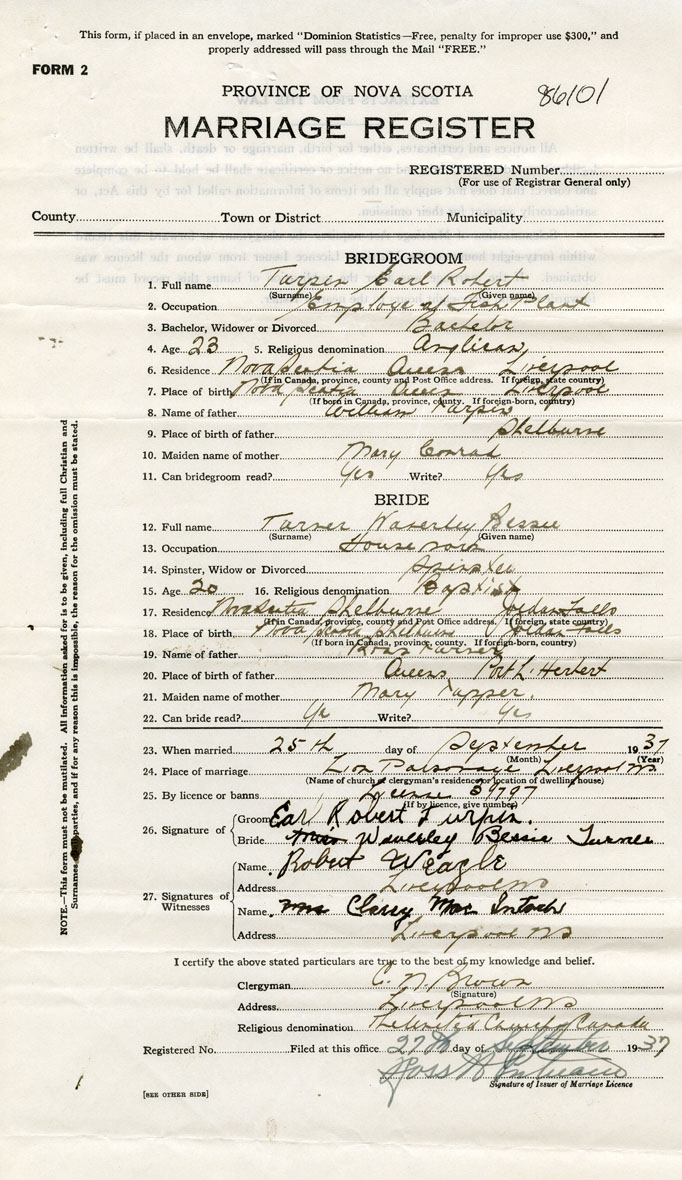 This form, if placed in an envelope, marked "Dominion Statistics—Free, penalty for improper use $300," and
properly addressed will pass through the Mail "FREE."
FORM 2
PROVINCE OF NOVA SCOTIA
86101
MARRIAGE REGISTER
REGISTERED Number
(For use of Registrar General only)
County Town or District Municipality
BRIDEGROOM
1. Full name Turpin Earl Robert
(Surname) (Given name)
2. Occupation Employe of Fish Plant
3. Bachelor, Widower or Divorced Bachelor
4. Age 23 5. Religious denomination Anglican
6. Residence Nova Scotia Queens Liverpool
(If in Canada, province, county and Post Office address. If foreign, state country)
7. Place of birth Nova Scotia Queens Liverpool
(If born in Canada, province, county. If foreign-born, country)
8. Name of father William Turpin
9. Place of birth of father Shelburne
10. Maiden name of mother Mary Conrad
11. Can bridegroom read? Yes Write? Yes
BRIDE
12. Full name Turner Waverley Bessie
(Surname) (Given name)
13. Occupation House work
14. Spinster, Widow or Divorced Spinster
15. Age 20 16. Religious denomination Baptist
17. Residence Nova Scotia Shelburne Jordan Falls
(If in Canada, province, county and Post Office address. If foreign, state country)
18. Place of birth Nova Scotia Shelburne Jordan Falls
(If born in Canada, province, county. If foreign-born, country)
19. Name of father Ross Turner
20. Place of birth of father Queens Port L. Herbert
21. Maiden name of mother Mary Tupper.
22. Can bride read? Yes Write? Yes
23. When married 25th day of September 1937
(Month) (Year)
24. Place of marriage Zion Parsonage Liverpool NS
(Name of church or clergyman's residence or location of dwelling house)
25. By licence or banns License 59797
(If by licence, give number)
26. Signature of
Groom Earl Robert Turpin.
Bride Miss Waverley Bessie Turner
27. Signatures of Witnesses
Name Robert Weagle
Address Liverpool NS
Name Mrs Clary Mac Intosh
Address Liverpool NS
I certify the above stated particulars are true to the best of my knowledge and belief.
Clergyman C. N. Brown
(Signature)
Address Liverpool NS
Religious denomination The United Church of Canada
Registered No. Filed at this office 27th day of September 1937
Ross
Signature of Issuer of Marriage Licence
[SEE OTHER SIDE]
NOTE.—This form must not be mutilated. All information asked for is to be given, including full Christian and
Surnames of parties, and if for any reason this is impossible, the reason for the omission must be stated.